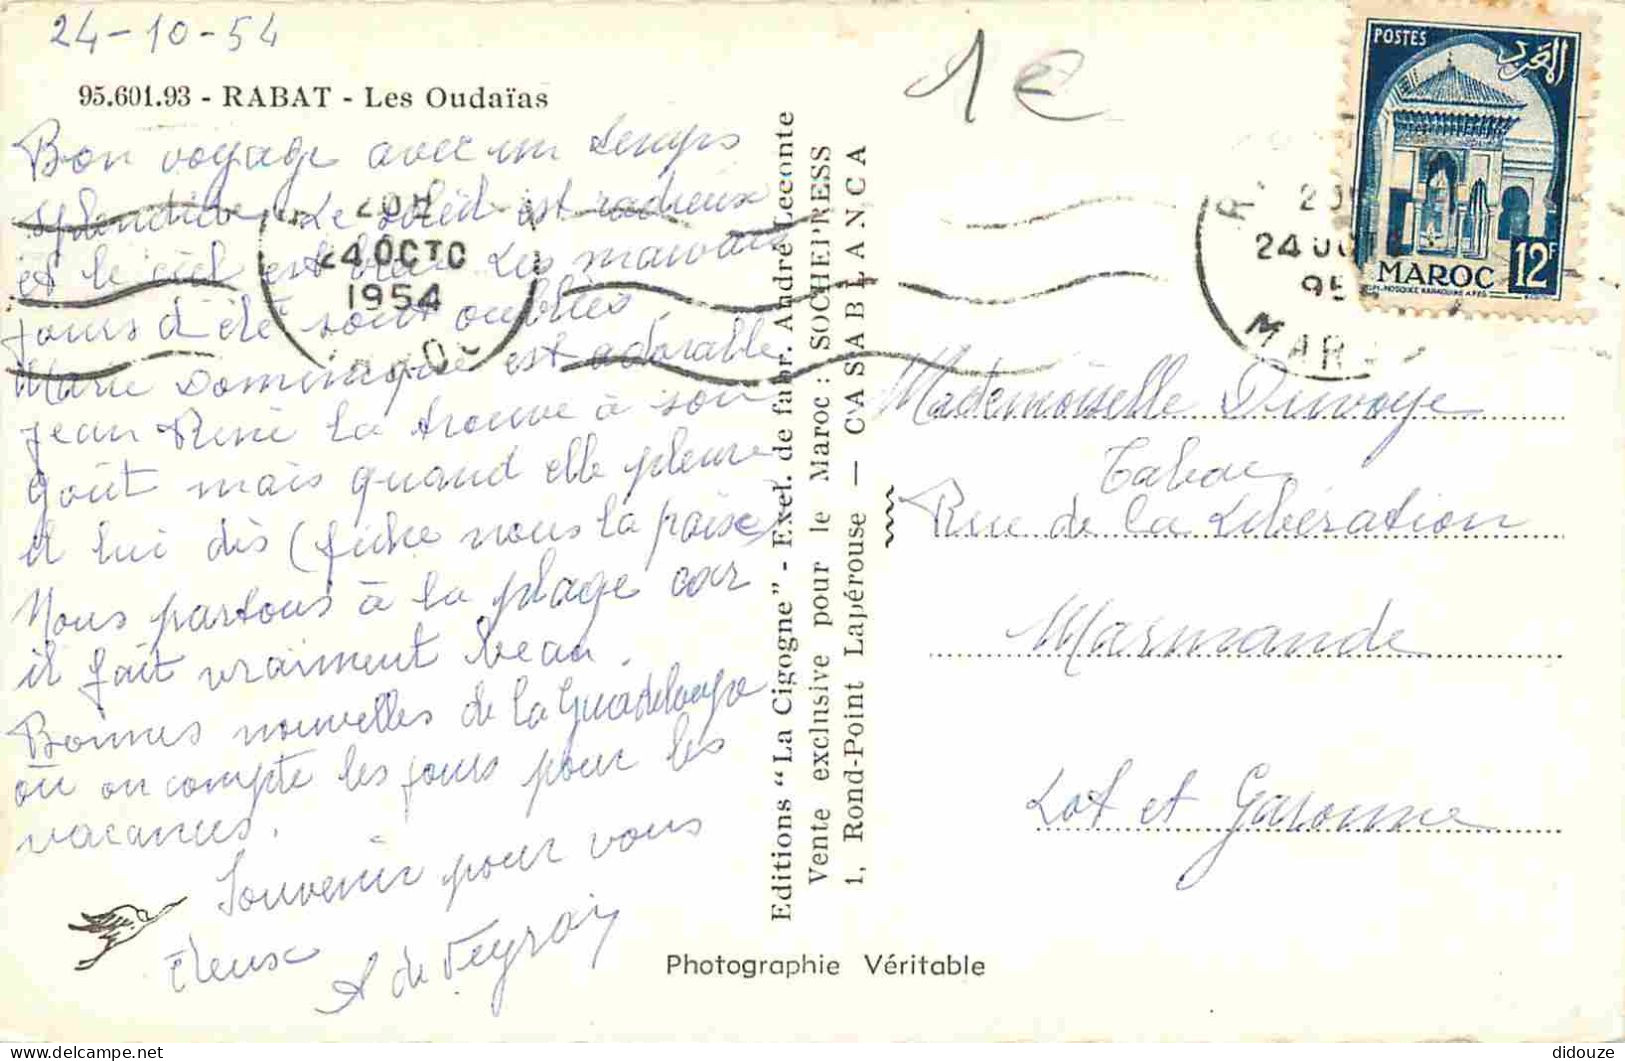 24-10-54
95.601.93 - RABAT - Les Oudaïas
Bon voyage avec un temps
splendide. Le soleil est radieux
et le ciel est bleu Les mauvais
jours d'été sont oubliés.
Marie Dominique est adorable
Jean René la trouve à son
goût mais quand elle pleure
il lui dis (fiche nous la paix)
Nous partons à la plage car
il fait vraiment beau.
Bonnes nouvelles de la Guadeloupe
où on compte les jours pour les
vacances.
Souvenir pour vous
deux
A de Veyran
Editions "La Cigogne" - Excl. de fabr. André Leconte
Vente exclusive pour le Maroc : SOCHEPRESS
1, Rond-Point Lapérouse — CASABLANCA
Photographie Véritable
1€
POSTES
المغرب
MAROC
12F
20H
24 OCTO
1954
24 OCT
195
MAR
Mademoiselle
Tabac
Rue de la Libération
Marmande
Lot et Garonne
didouze